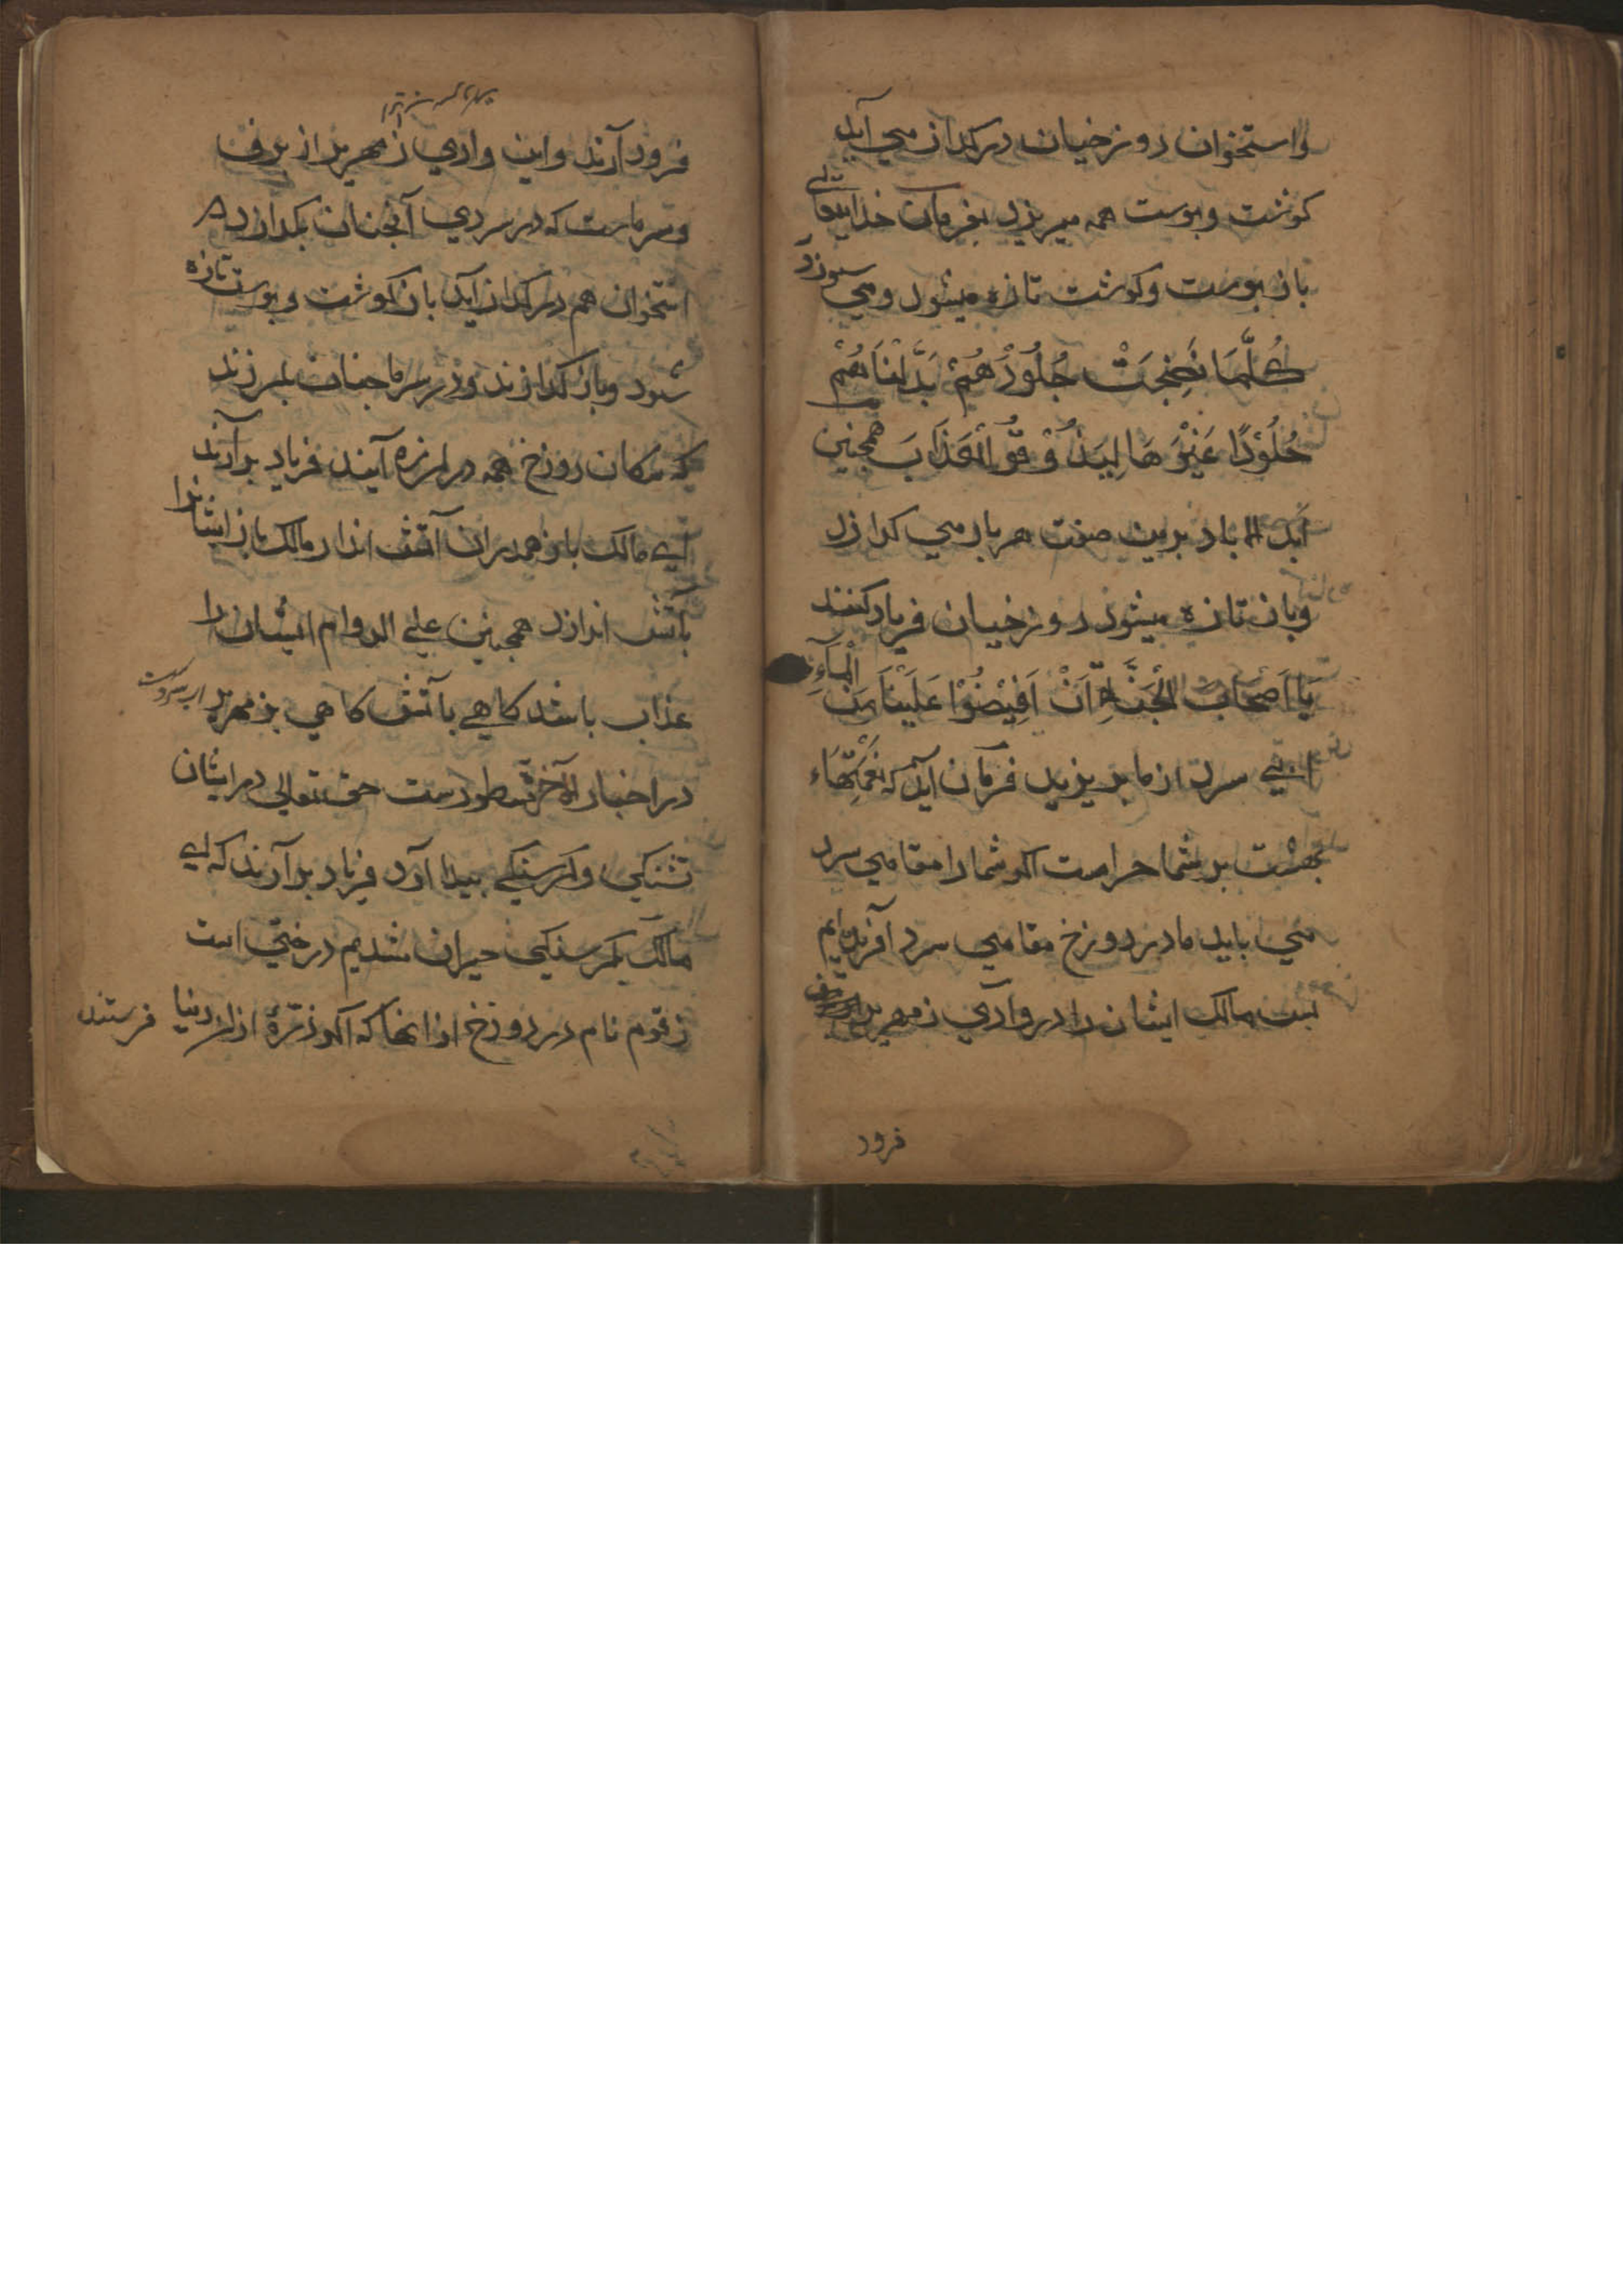 واستخوان دوزخیان در کداز می آید
کوشت وپوست همه میریزد بفرمان خدایتعالی
باز پوست وکوشت تازه میشود ومی سوزد
كُلَّمَا نَضِجَتْ جُلُوْدُهُمْ بَدَّلْنَاهُمْ
جُلُوْدًا غَيْرَهَا لِيَذُوْقُوا الْعَذَابَ همچنین
ابد الاباد برین صفت هربار می کدازد
وباز تازه میشود دوزخیان فریاد کنند
يَا اَصْحَابَ الْجَنَّةِ اَنْ اَفِيْضُوْا عَلَيْنَا مِنَ الْمَآءِ
ابی سرد از ما بریزید فرمان آید که نعمتهاء
بهشت بر شما حرامست اکر شما را مقامی سرد
می باید ما در دوزخ مقامی سرد آفریده ایم
پس مالک ایشان را در وادی زمهریر
فرود
فرود آرند واین وادی زمهریر از برف
وسرماست که در سردی آنچنان بکدازد
استخوان هم در کداز آید باز کوشت وپوست تازه
شود وباز کدازند ودر سرما چنان بلرزند
که مکان دوزخ همه در لرزه آیند فریاد برآرند
ای مالک باز همدران آتش انداز مالک باز ایشانرا
بآتش اندازد همچنین علی الدوام ایشان را
عذاب باشد کاهی بآتش کاهی بزمهریر
در اخبار الآخرة مسطورست حق تعالی در ایشان
تشنکی وکرسنکی پیدا آرد فریاد برآرند که ای
مالک بکرسنکی حیران شدیم درختی است
زقوم نام در دوزخ از انها که اکر ذرّهٔ ازان در دنیا فرستند